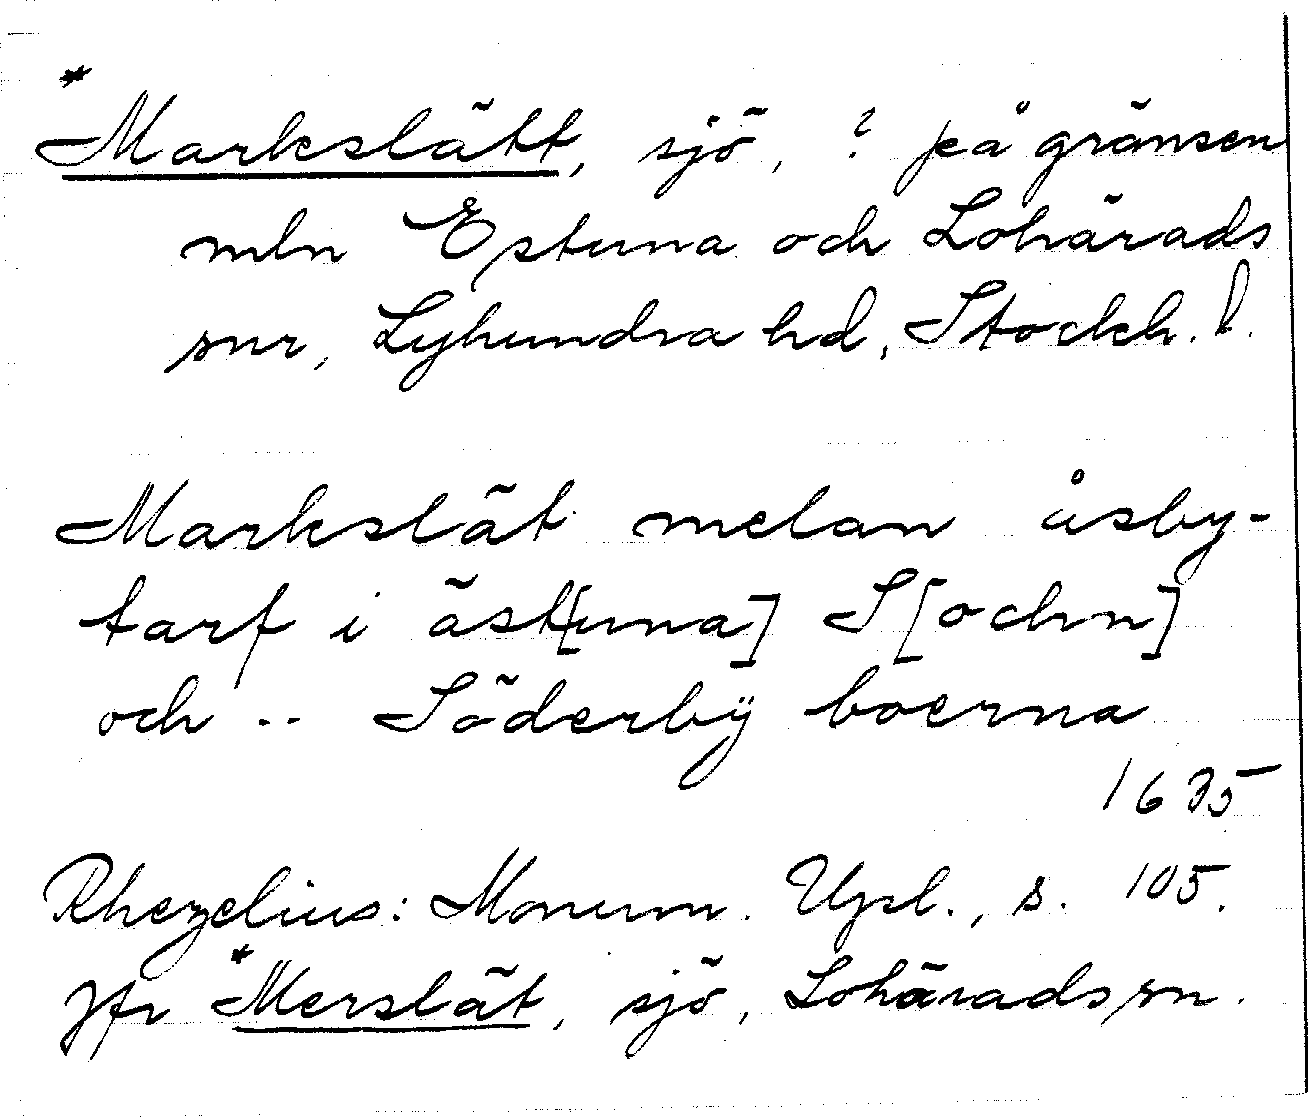 *Markslätt, sjö, ? på gränsen
mln Estuna och Lohärads
snr, Lyhundra hd, Stockh. l.
Markslät melan åsby-
tarf i äst[una] S[ochn]
och .. Söderbÿ boerna
1635
Rhezelius: Monum. Upl., s. 105.
Jfr *Merslät, sjö, Lohärads sn.